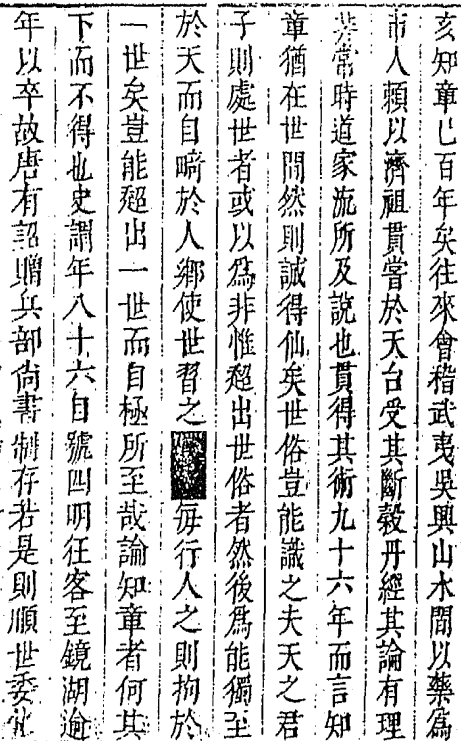 亥知章㠯百年矣往來會稽武夷吳興山水間以藥爲
市人賴以濟祖貫嘗於天台受其斷穀丹經其論有理
常時道家流所及說也貫得其術九十六年而言知
章猶在世間然則誠得仙矣世俗豈能識之夫天之君
子則處世者或以爲非惟超出世俗者然後爲能獨至
於天而自畸於人鄉使世習之每行人之則拘於
一世矣豈能超出一世而自極所至哉論知章者何其
下而不得也史謂年八十六自號四明狂客至鏡湖逾
年以卒故唐有詔贈兵部尚書制存若是則順世委化